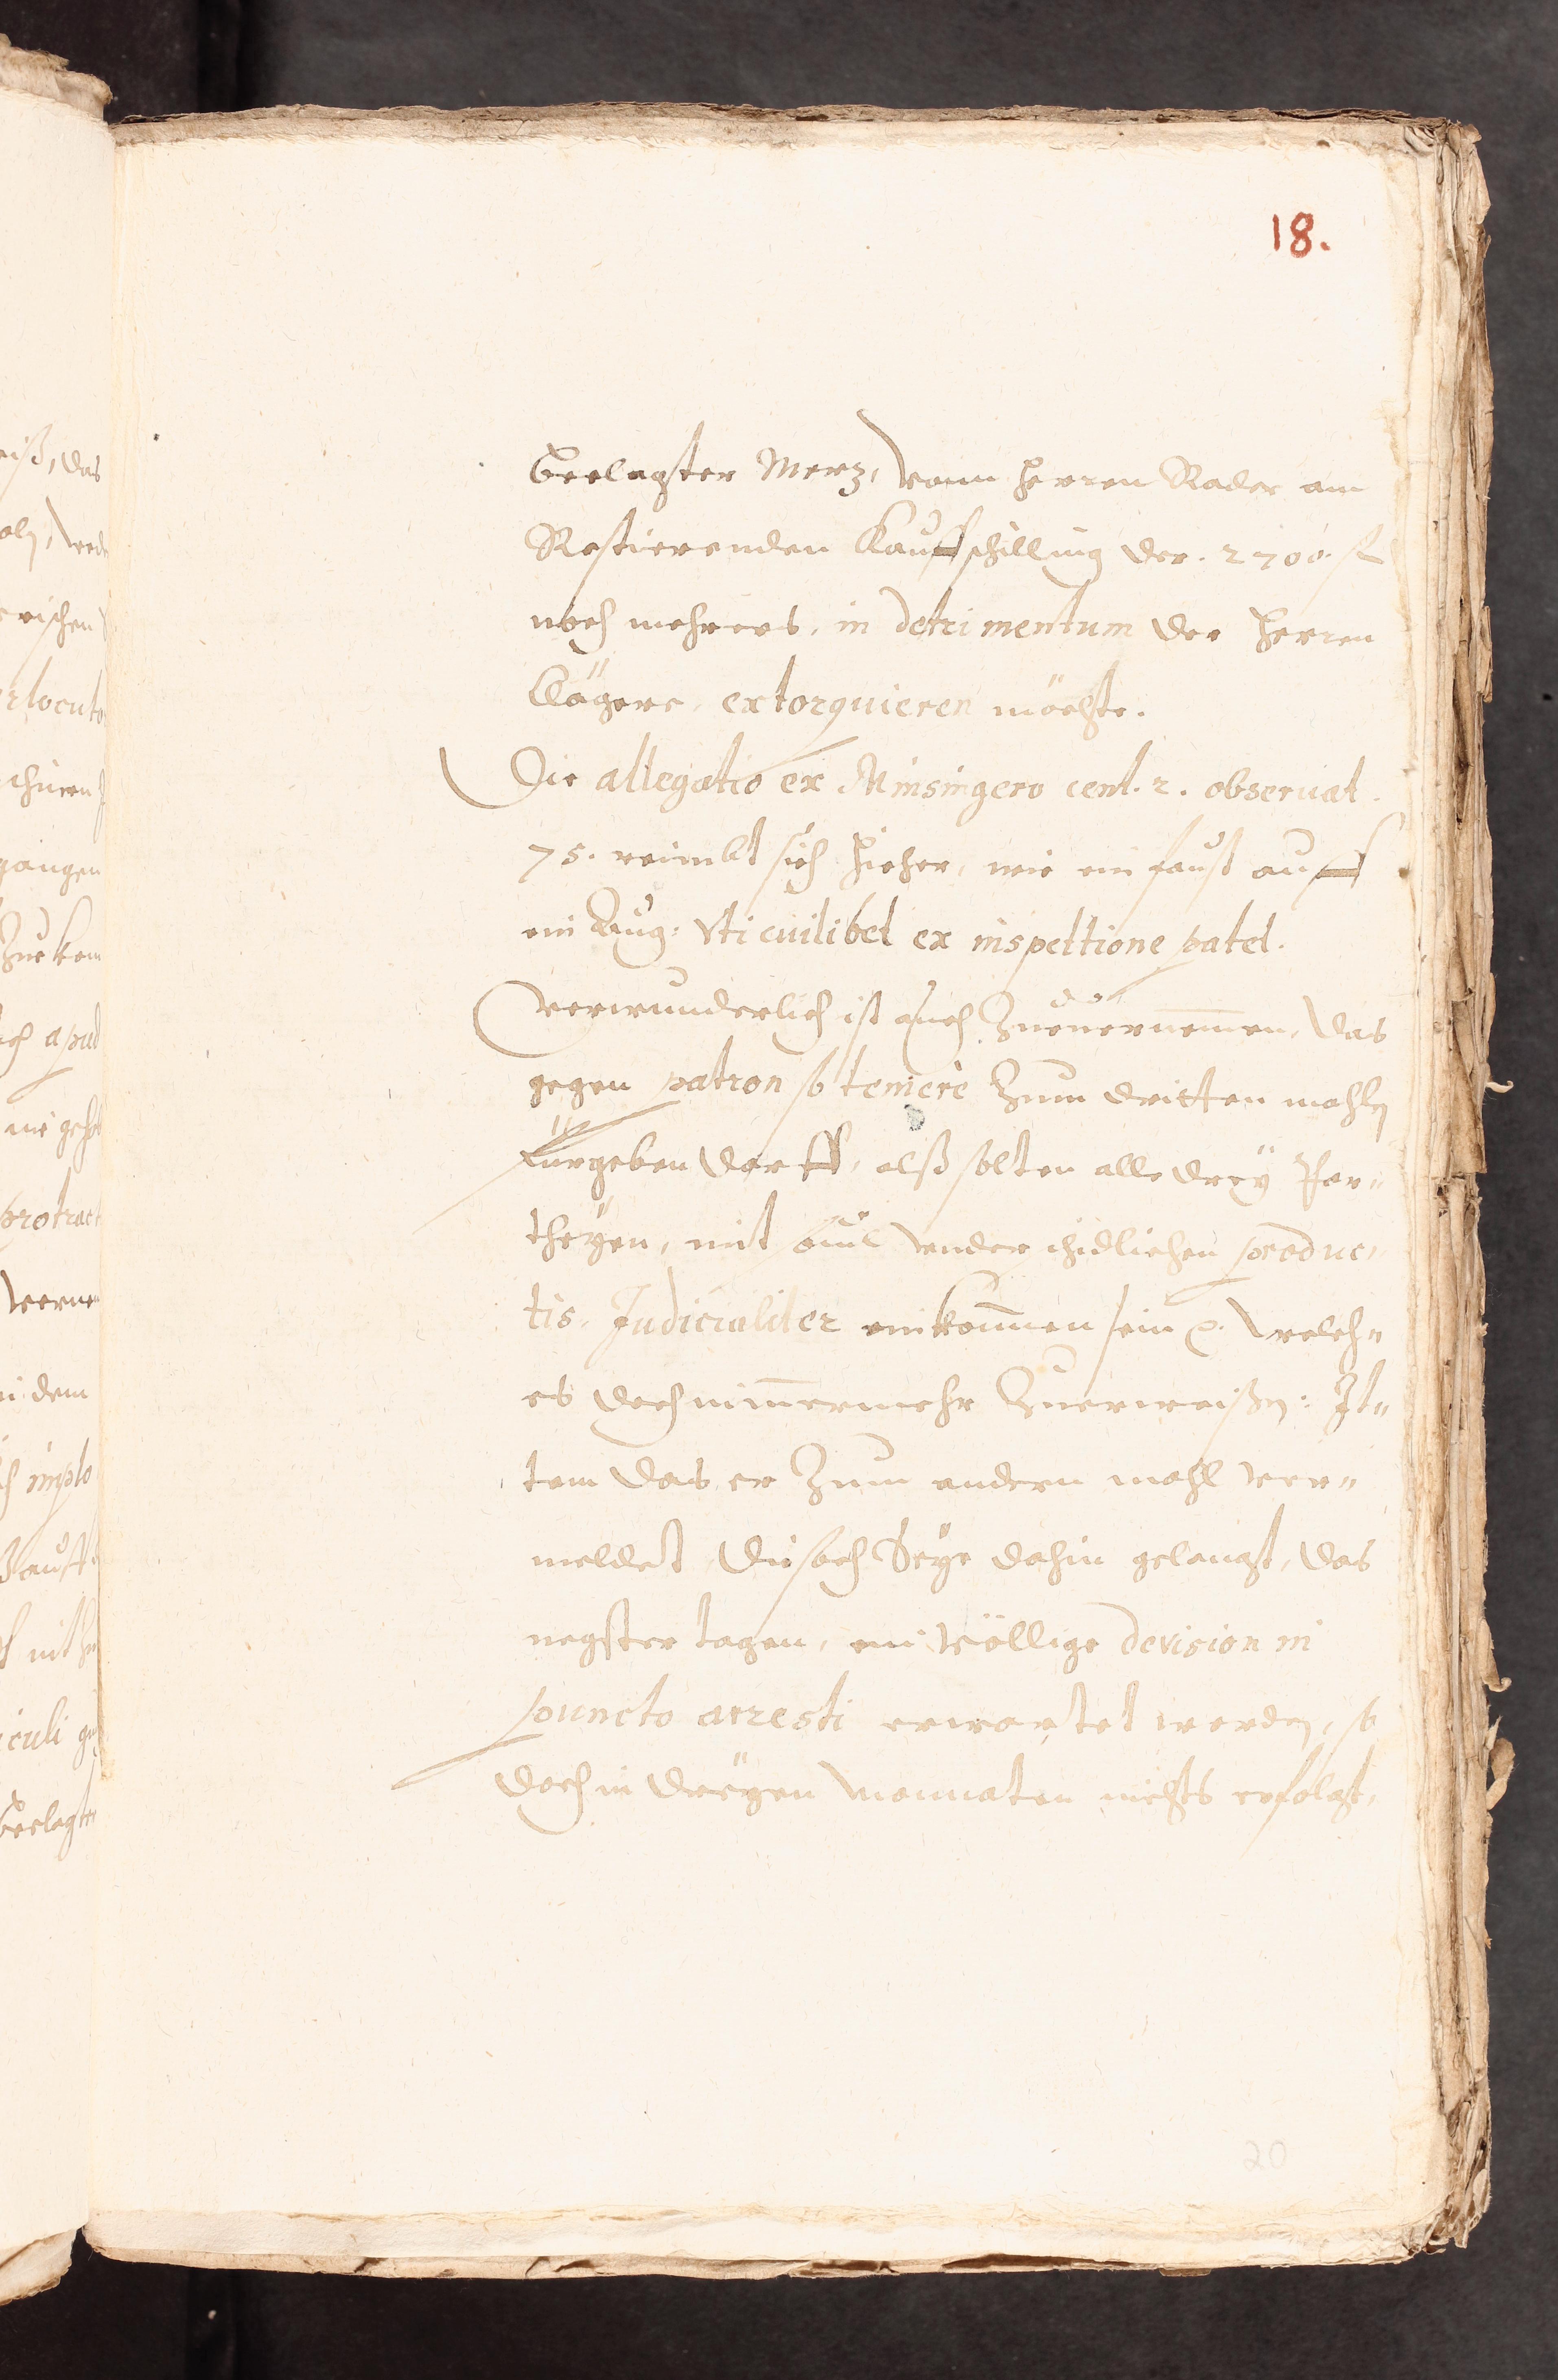 18.
Beclagter Merz, vom Herren Rader am
Restierenden Kauffschilling der. 2700. fl
noch mehrers, in detrimentum der Herren
Clägere, extorquieren möchte.
Die allegatio ex Minsingero cent. 2. obseruat.
75. reimbt sich hieher, wie ein faust auff
ein Aug: Vti cuilibet ex inspectione patet.
Verwunderlich ist auch Zuuernemen, das
gegen patron so temerè Zum dritten mahln
fürgeben darff, alß solten alle dreÿ Par„
theÿen, mit vnderschidlichen produc„
tis. Judicialiter einkommen sein p. welch„
es doch nimmermehr Zuerweißen: It„
tem das er Zum andern mahl ver„
meldet Die sach Seÿe dahin gelangt, das
negster tagen, ein völlige devision in
puncto arresti erwartet werden, so
doch in dreÿen Monnaten nichts erfolgt,
20